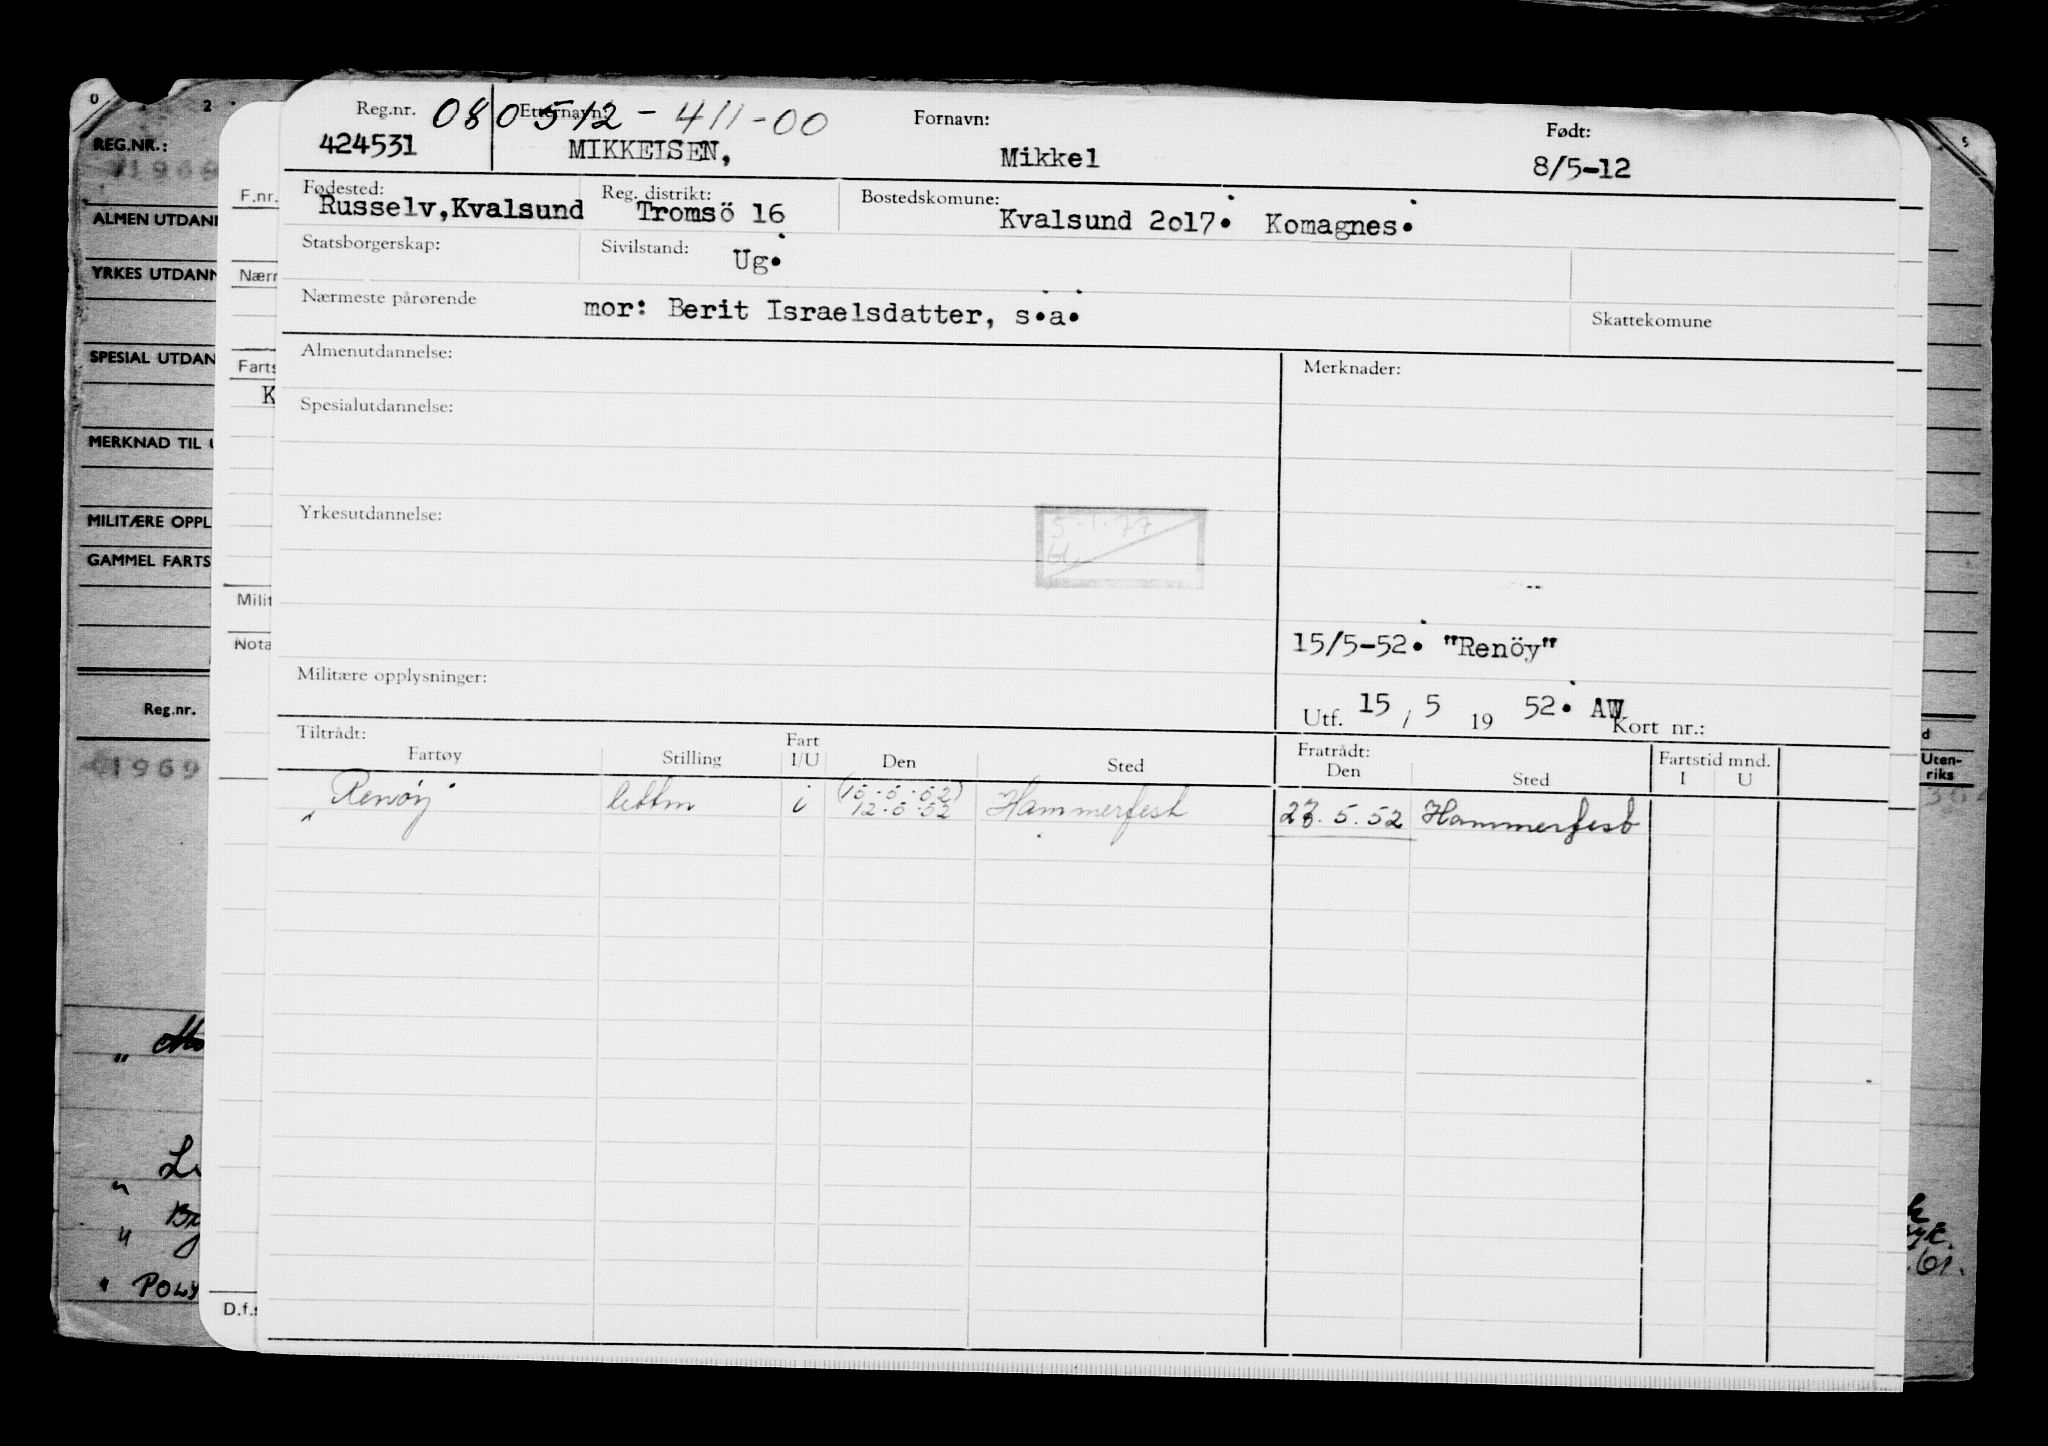 O 2
REG.NR.:
1969
ALMEN UTDANN
YRKES UTDANN
SPESIAL UTDAN
MERKNAD TIL U
MILITÆRE OPPL
GAMMEL FARTS
Reg.nr.
1969
" 
" L
" B
" POLY
F.nr.
Nærm
Farts
K
Milit
Nota
D.f.s
Reg.nr. 080512-411-00 Etternavn: Fornavn: Født:
424531 MIKKELSEN, Mikkel 8/5-12
Fødested: Reg. distrikt: Bostedskomune:
Russelv,Kvalsund Tromsö 16 Kvalsund 2o17. Komagnes.
Statsborgerskap: Sivilstand: Ug.
Nærmeste pårørende mor: Berit Israelsdatter, s.a. Skattekomune
Almenutdannelse: Merknader:
Spesialutdannelse:
Yrkesutdannelse: 5.1.77
15/5-52. "Renöy"
Militære opplysninger:
Utf. 15 / 5 19 52. AW Kort nr.:
Tiltrådt: Fratrådt: Fartstid mnd.
Fartøy Stilling Fart I/U Den Sted Den Sted I U
(15.5.52)
" Renöy lettm i 12.5.52 Hammerfest 23.5.52 Hammerfest
5
d
Uten-
riks
.61.